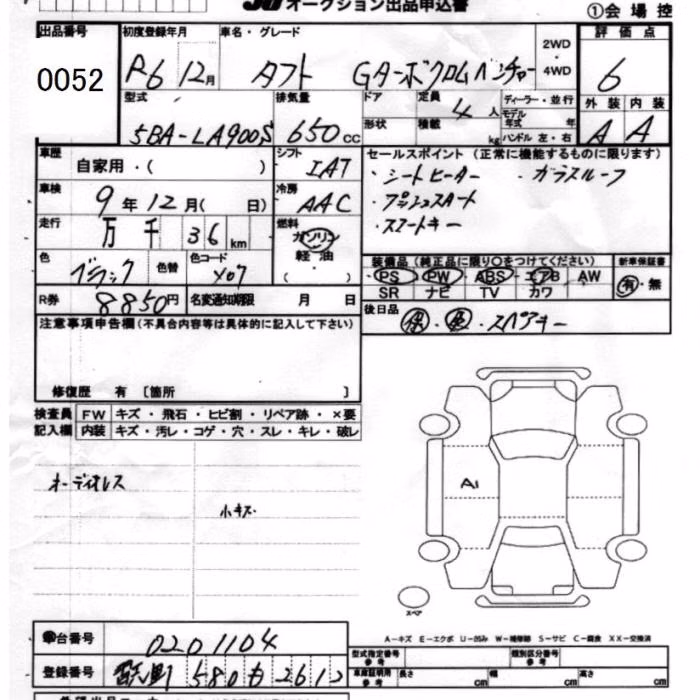 オークション出品申込書
①会場控
出品番号 初度登録年月 車名・グレード 2WD・4WD 評価点
0052 R6 12月 タフト Gターボクロムベンチャー 6
型式 排気量 ドア 定員 4人 ディーラー・並行 外装 内装
5BA-LA900S 650cc 形状 積載 kg モデル年式 年 ハンドル 左・右 A A
車歴 自家用・( ) シフト IAT セールスポイント(正常に機能するものに限ります)
車検 9年12月( 日) 冷房 AAC ・シートヒーター ・ガラスルーフ
走行 万 千 36km 燃料 ガソリン 軽油 ( ) ・プッシュスタート
・スマートキー
色 ブラック 色替 色コード X07
装備品(純正品に限り○をつけてください) 新車保証書
PS・PW・ABS・エアB AW 有・無
SR ナビ TV カワ
R券 8850円 名変通知期限 月 日
後日品 保・取・スペアキー
注意事項申告欄(不具合内容等は具体的に記入して下さい)
修復歴 有 〔箇所 〕
検査員記入欄 FW キズ・飛石・ヒビ割・リペア跡・×要
内装 キズ・汚レ・コゲ・穴・スレ・キレ・破レ
オーディオレス
小キズ
A1
スペア
A-キズ E-エクボ U-凹み W-補修跡 S-サビ C-腐食 XX-交換済
車台番号 0201104
型式指定番号 参考 類別区分番号 参考
登録番号 580 2612
車庫証明用 参考 長さ cm 幅 cm 高さ cm